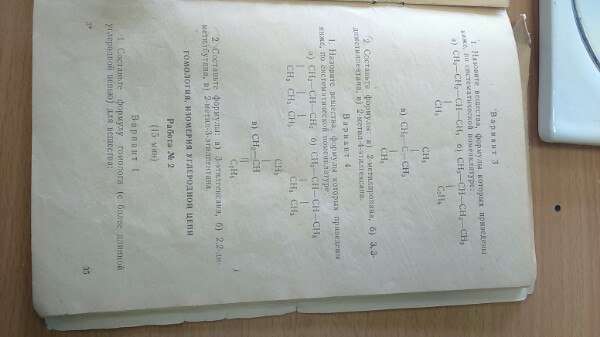 Вариант 3
1. Назовите вещества, формулы которых приведены
ниже, по систематической номенклатуре:
а) CH₃—CH₂—CH—CH₃ б) CH₃—CH—CH₂—CH₃
CH₃ C₂H₅
CH₃
в) CH₃—C—CH₃
CH₃
2. Составьте формулы: а) 2-метилпропана, б) 3,3-
диметилпентана, в) 2-метил-4-этилгексана.
Вариант 4
1. Назовите вещества, формулы которых приведены
ниже, по систематической номенклатуре:
а) CH₂—CH—CH₂ б) CH₃—CH—CH—CH₃
CH₃ CH₃ CH₃ CH₃ CH₃
в) CH₃—CH
C₂H₅
2. Составьте формулы: а) 3-этилгексана, б) 2,2-ди-
метилбутана, в) 2-метил-3-этилпентана.
ГОМОЛОГИЯ. ИЗОМЕРИЯ УГЛЕРОДНОЙ ЦЕПИ
Работа № 2
(15 мин)
Вариант 1
1. Составьте формулу гомолога (с более длинной
углеродной цепью) для вещества:
35